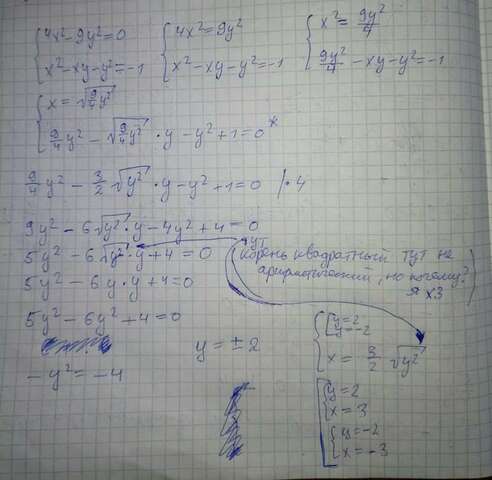 {4x²-9y²=0 {4x²=9y² {x²=9y²/4
{x²-xy-y²=-1 {x²-xy-y²=-1 {9y²/4-xy-y²=-1
{x=√(9/4y²)
{9/4y²-√(9/4y²)·y-y²+1=0*
9/4y²-3/2√(y²)·y-y²+1=0 |·4
9y²-6√(y²)·y-4y²+4=0
5y²-6√(y²)·y+4=0
(корень квадратный тут не
арифметический, но почему?
я хз)
5y²-6y·y+4=0
5y²-6y²+4=0
-y²=-4
y=±2
{[y=2
[y=-2
{x=3/2√(y²)
[{y=2
{x=3
{y=-2
{x=-3